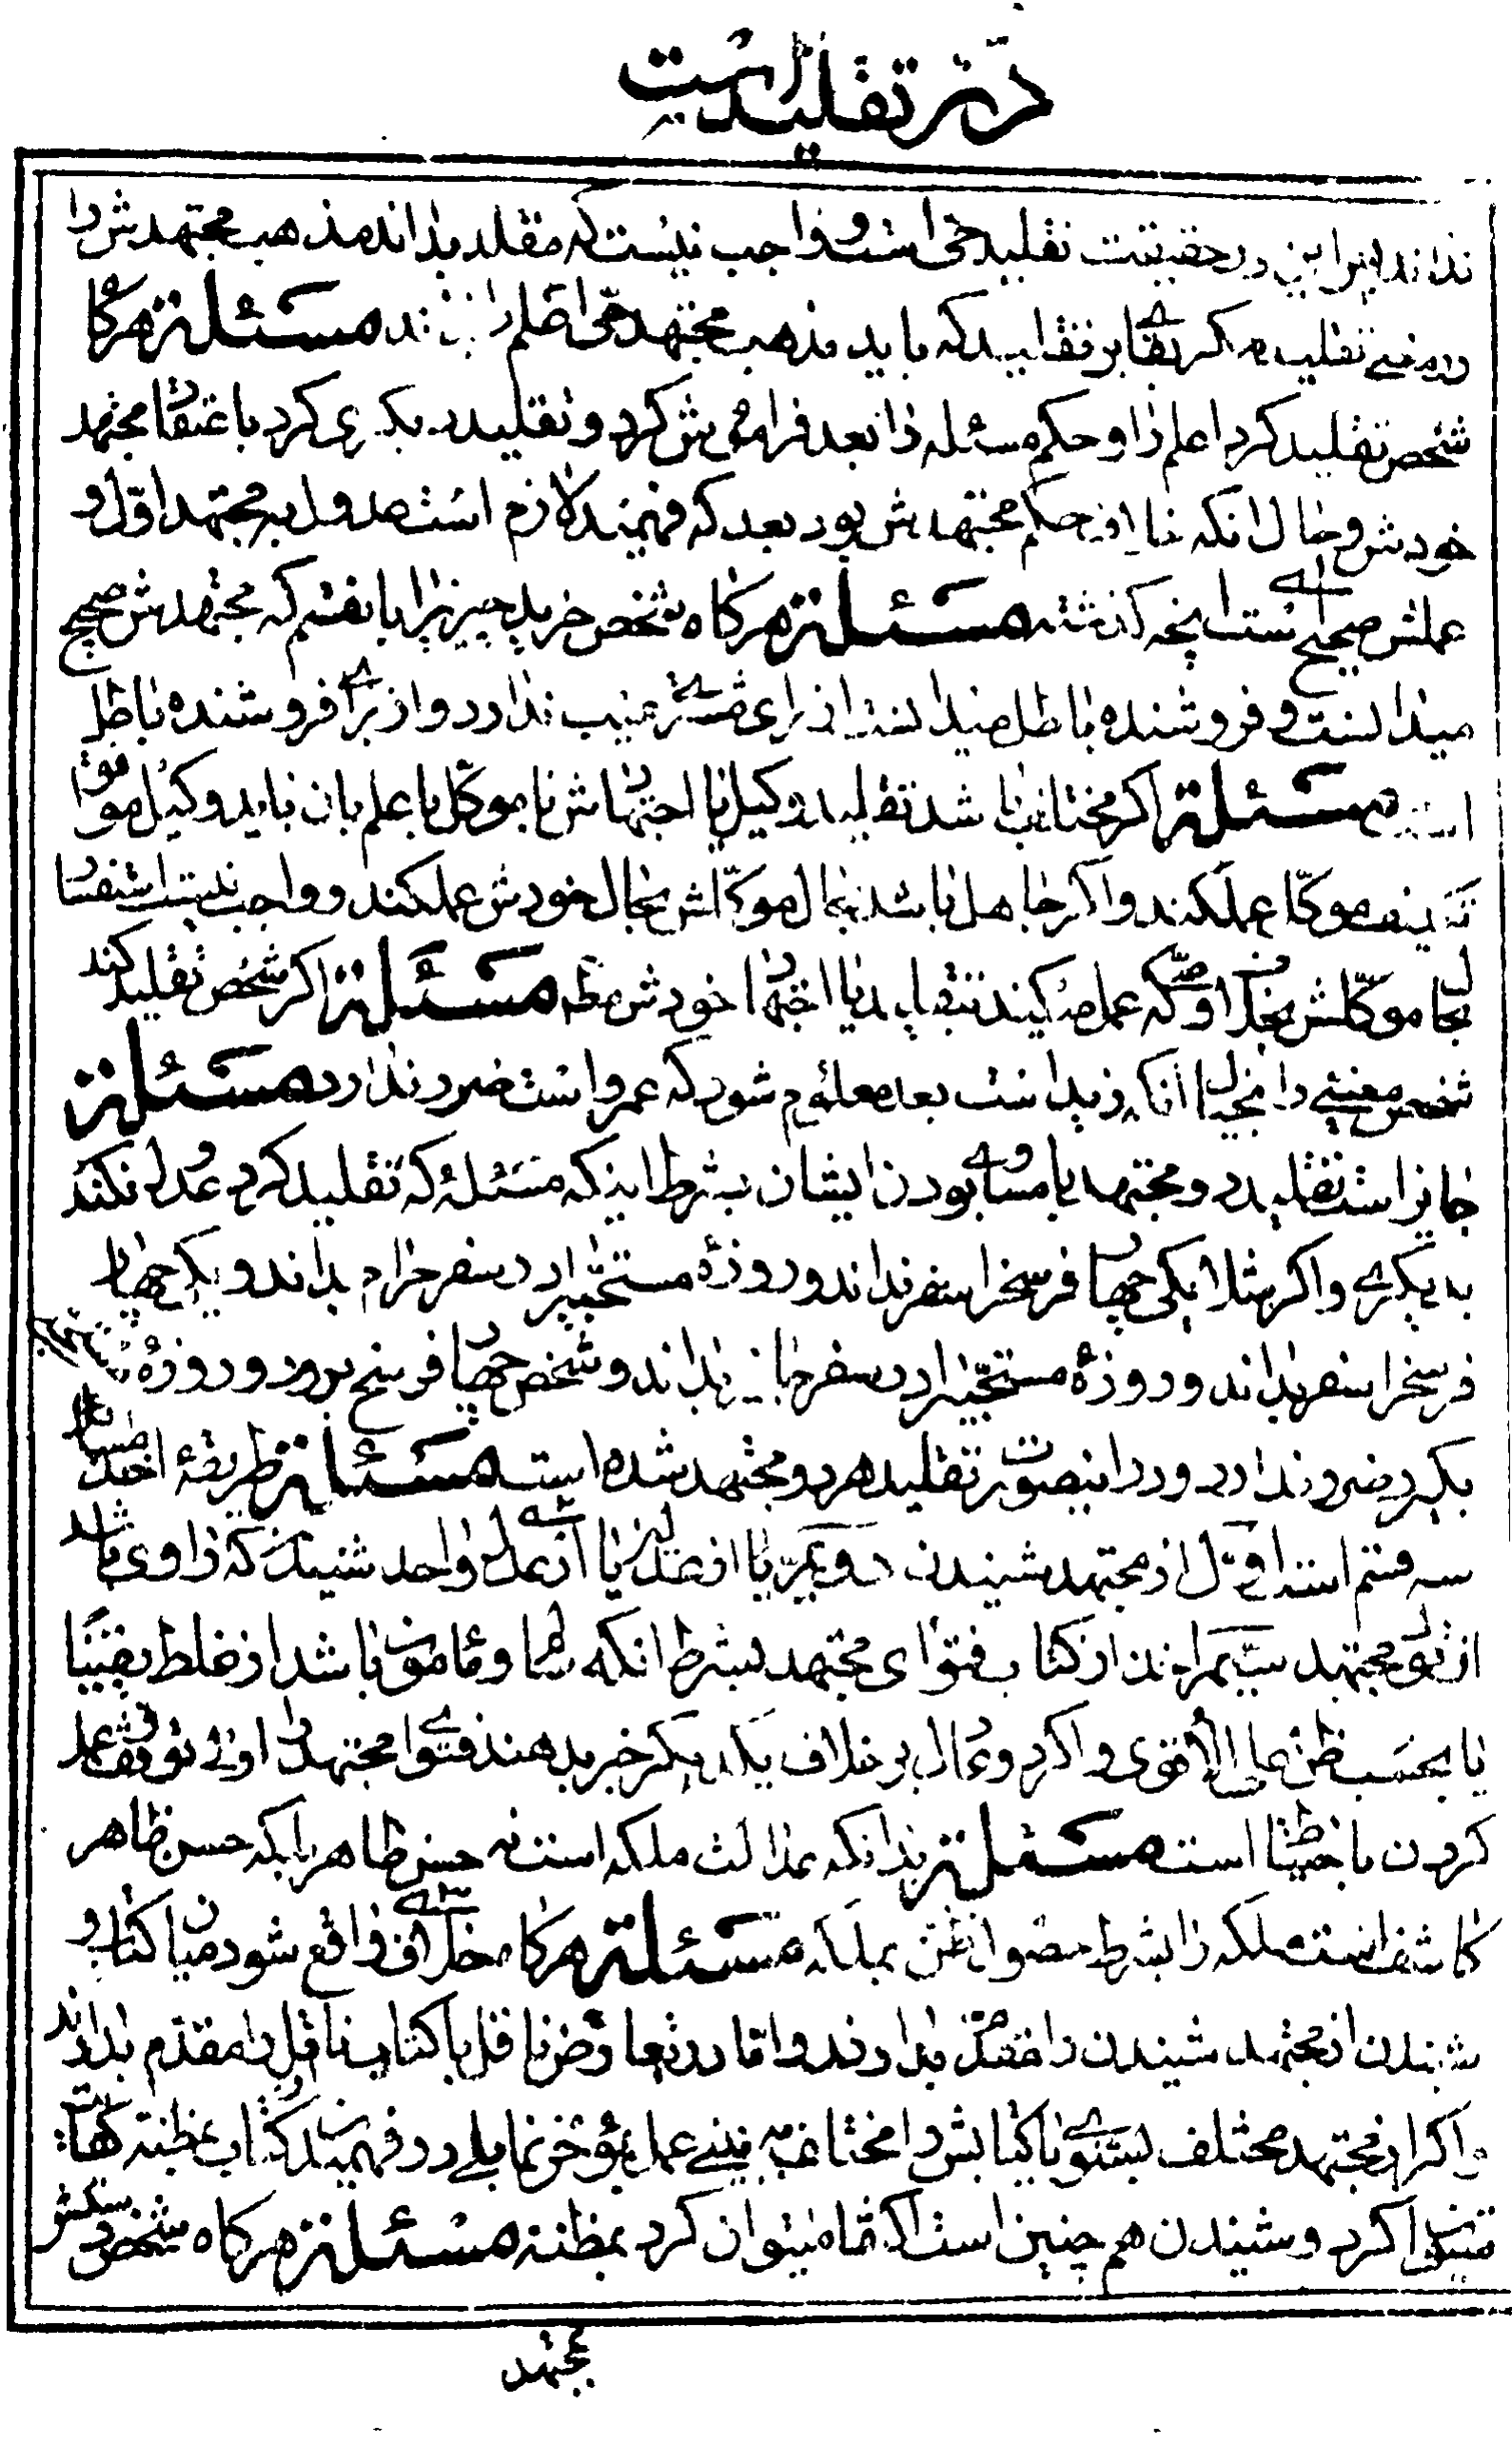 در تقلید است
نداند پس این در حقیقت تقلید حی است و واجب نیست که مقلد بداند مذهب مجتهدش را
در تقلید مگر بقا بر تقلید که باید مذهب مجتهد حی اعلم را بداند مسئلة هرگاه
شخص تقلید کرد اعلم را و حکم مسئله را بعد فراموش کرد و تقلید دیگری کرد باعتقاد مجتهد
خودش و حال آنکه خلاف حکم مجتهدش بود بعد که فهمید لازم است عدول به مجتهد اول و
عملش صحیح است آنچه گذشته مسئلة هرگاه شخص خرید چیزیرا بانقسم که مجتهدش صحیح
میدانست و فروشنده باطل میدانست از برای مشتری عیب ندارد و از برای فروشنده باطل
است مسئلة اگر مختلف باشد تقلید وکیل یا اجتهادش با موکل با علم بان باید وکیل موافق
موکل عمل کند و اگر جاهل باشد بحال موکلش بحال خودش عمل کند و واجب نیست استفسار
حال موکلش بتقلید یا اجتهاد خودش مسئلة اگر شخص تقلید کند
شخص معینی را بخیال آنکه زید است بعد معلوم شود که عمرو است ضرر ندارد مسئلة
جایز است تقلید دو مجتهد با مساوی بودن ایشان بشرط اینکه مسئلۀ که تقلید کرد عدول نکند
بدیگری و اگر مثلا یکی چهار فرسخ را سفر نداند و روزۀ مستحبی را در سفر حرام بداند و یکی چهار
فرسخ را سفر بداند و روزۀ مستحبی را در سفر جایز بداند و شخص چهار فرسخ برود و روزۀ مستحبی
بگیرد ضرر ندارد و در اینصورت تقلید هر دو مجتهد شده است مسئلة طریقۀ اخذ مسائل
سه قسم است اول از مجتهد شنیدن دویم یا از عدلین یا از عدل واحد شنیدن که راوی باشد
از قول مجتهد سیم از کتاب فتوای مجتهد بشرط آنکه سالم و مأمون باشد از غلط یقینا
یا بحسب ظن علی الاقوی و اگر دو عادل بر خلاف یکدیگر خبر بدهند فتوای مجتهد را اولی توقف و عمل
کردن باحتیاط است مسئلة بدانکه عدالت ملکه است نه حسن ظاهر بلکه حسن ظاهر
کاشف است ملکه را بشرط حصول ظن بملکه مسئلة هرگاه خلافی واقع شود میان کتاب و
شنیدن از مجتهد شنیدن را مقدم بدارند و اما در تعارض ناقل با کتاب ناقل را مقدم بدارند
و اگر از مجتهد مختلف بشنوی یا کتابش را مختلف بینی عمل بمؤخر نما بلی در فهمیدن کتاب بمظنه کفایت
میتوان کرد و شنیدن هم چنین است اکتفا میتوان کرد بمظنه مسئلة هرگاه شخص
مجتهد